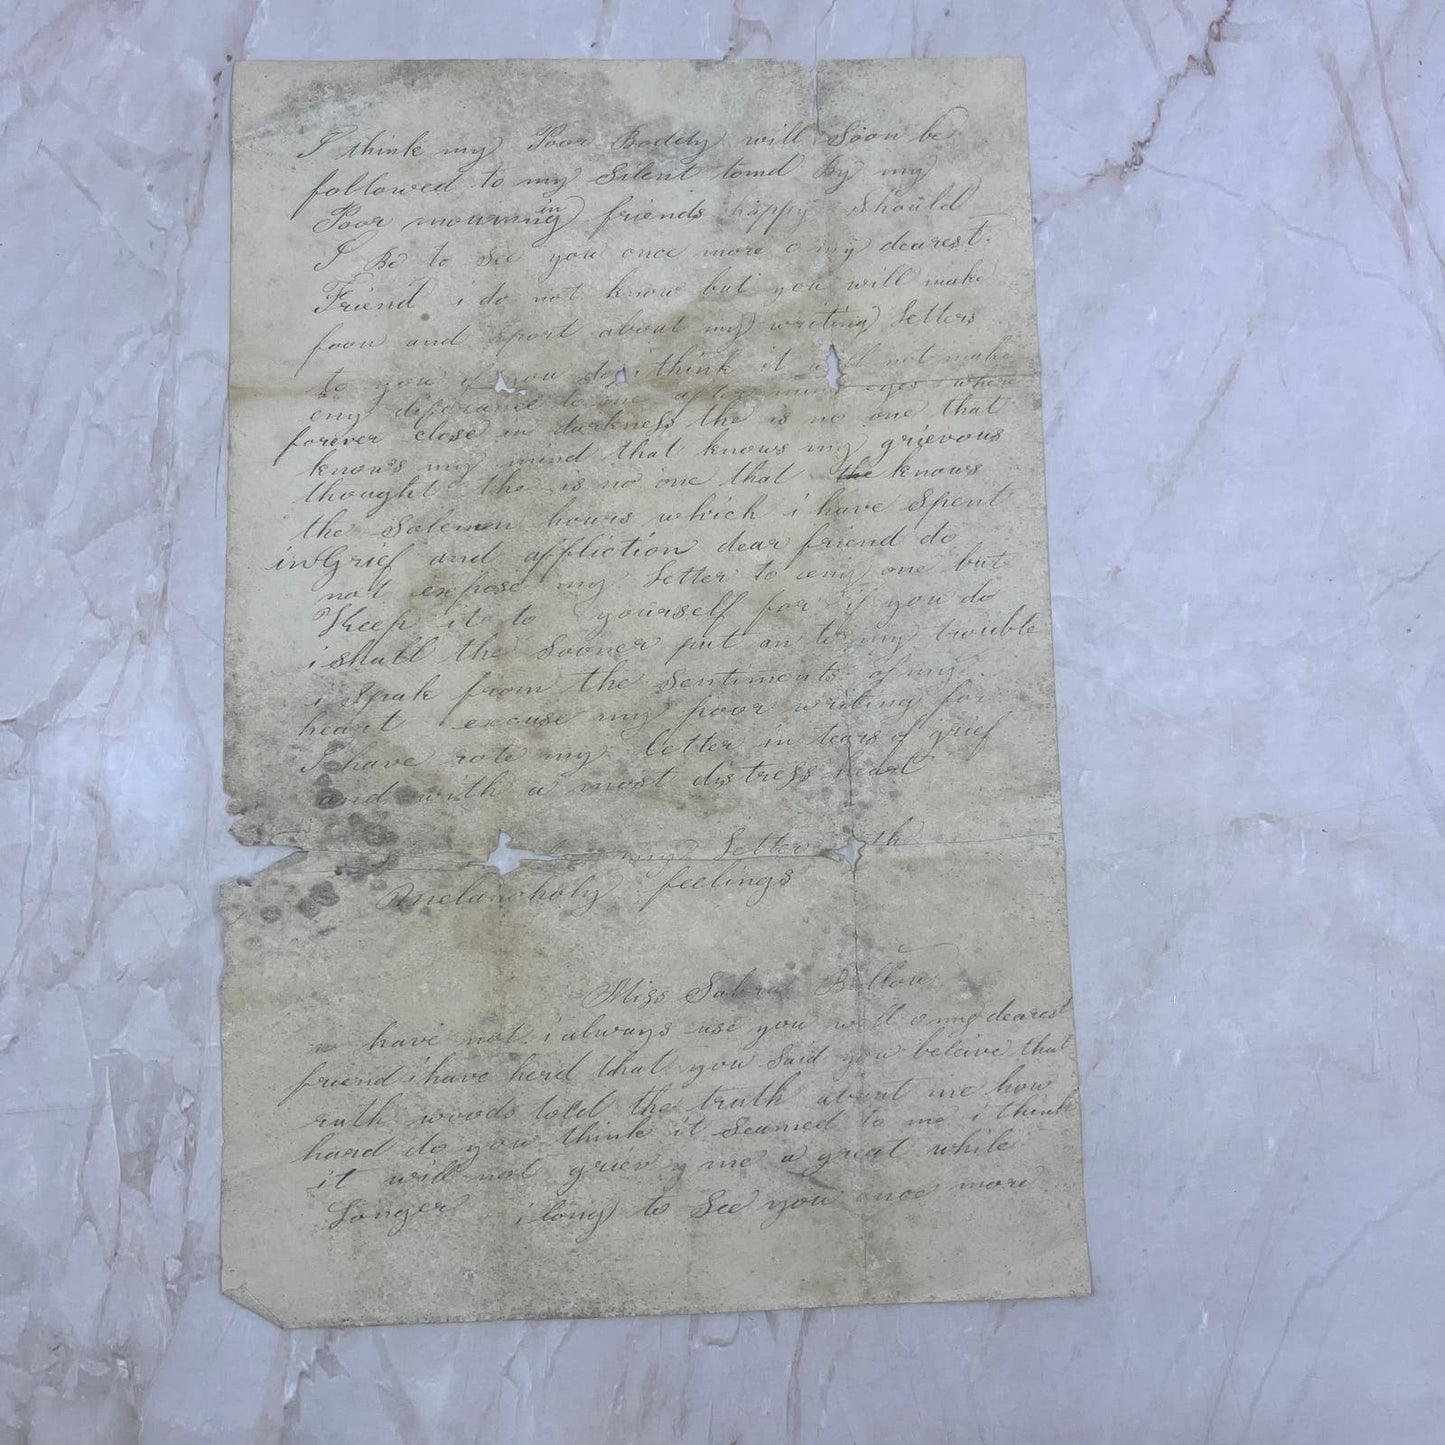 I think my Poor Boddy will Soon be
followed to my Silent tomd By my
Poor mourning friends happy Should
I Be to See you once more o my dearest
Friend i do not know but you will make
foon and Sport about my writing Letters
to you if you do i think it will not make
eny diferance to me after mine eyes where
forever close in darkness the is no one that
knows my mind that knows my grievous
thought the is no one that the knows
the Solemn hours which i have Spent
in Grief and affliction dear friend do
not expose my Letter to eny one but
Keep it to yourself for if you do
i shall the Sooner put an to my trouble
i Speak from the Sentiments of my
heart excuse my poor writing for
I have rote my letter in tears of grief
and with a most distress heart
my Letter
Melancholy feelings
Miss Sabra
have not i always use you well o my dearest
friend i have herd that you Said you beleive that
ruth woods told the truth about me how
hard do you think it Seamed to me i think
it will not griev me a great while
Longer i long to See you once more